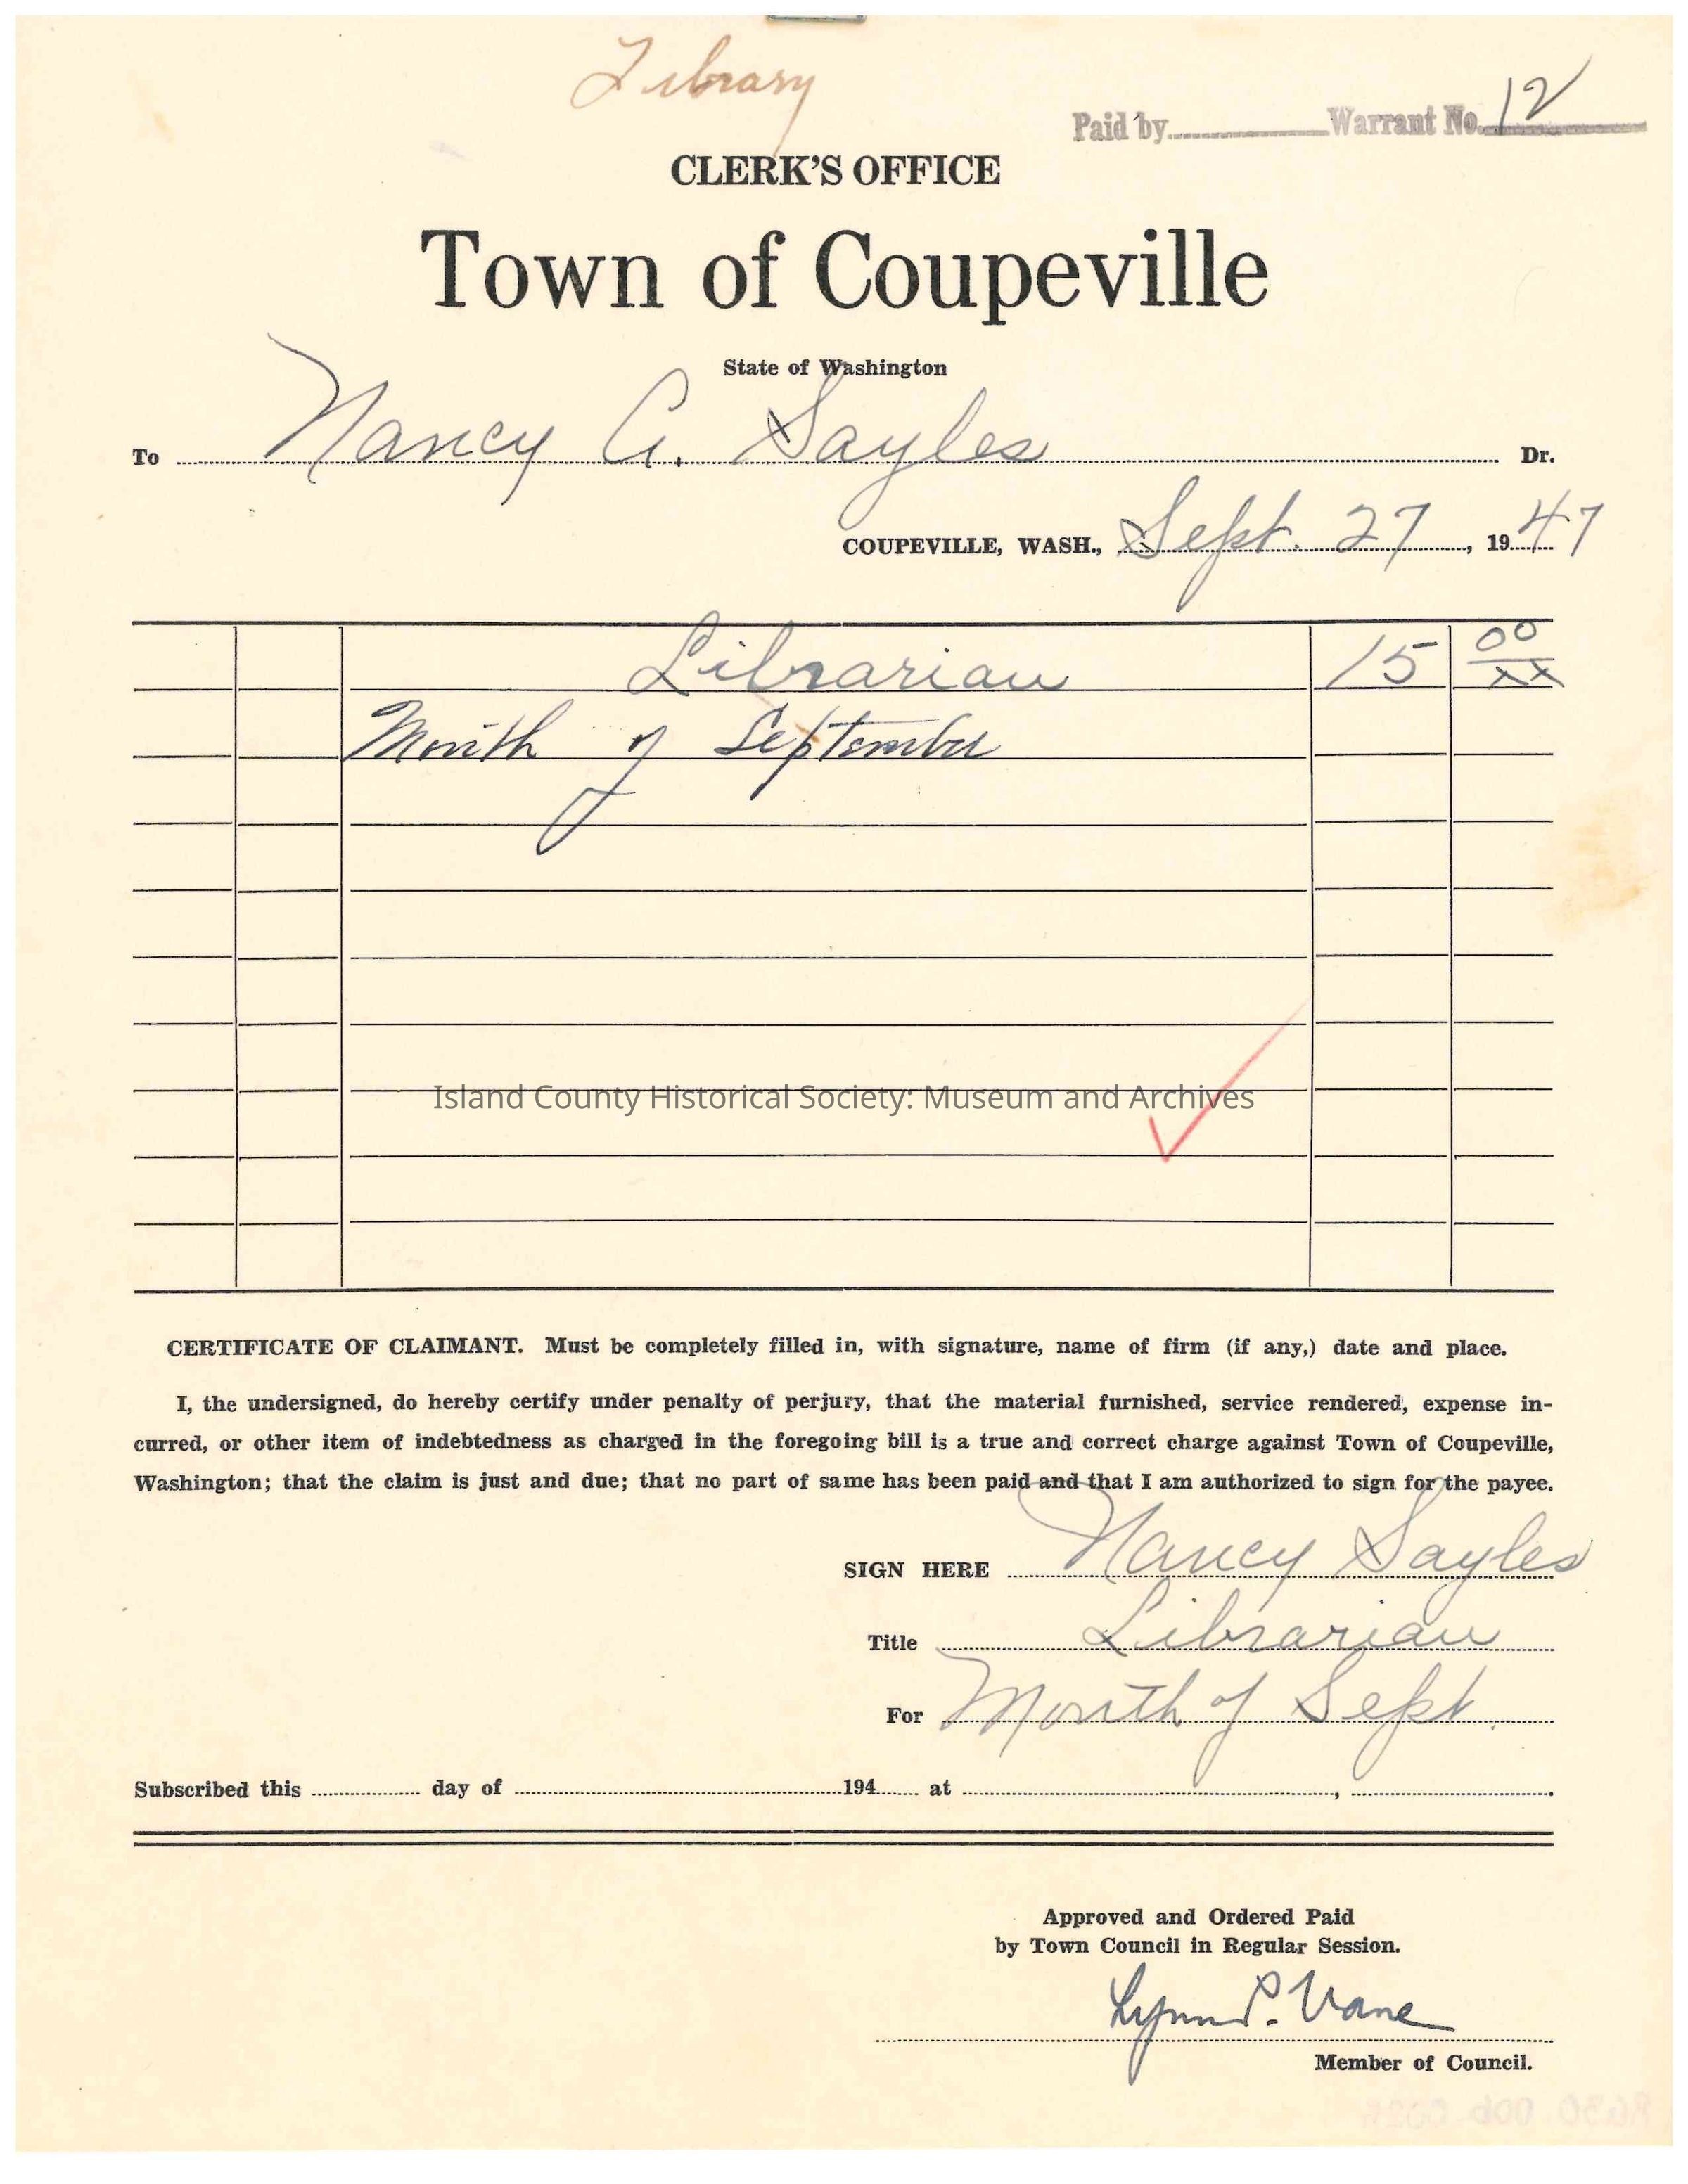 Library
Paid by ______ Warrant No. 12
CLERK'S OFFICE
Town of Coupeville
State of Washington
To Nancy A. Sayles Dr.
COUPEVILLE, WASH., Sept. 27, 1947
Librarian 15 00/xx
Month of September
Island County Historical Society: Museum and Archives
CERTIFICATE OF CLAIMANT. Must be completely filled in, with signature, name of firm (if any,) date and place.
I, the undersigned, do hereby certify under penalty of perjury, that the material furnished, service rendered, expense in-
curred, or other item of indebtedness as charged in the foregoing bill is a true and correct charge against Town of Coupeville,
Washington; that the claim is just and due; that no part of same has been paid and that I am authorized to sign for the payee.
SIGN HERE Nancy Sayles
Title Librarian
For Month of Sept.
Subscribed this ______ day of ______ 194__ at ______, ______.
Approved and Ordered Paid
by Town Council in Regular Session.
Lynn P. Vane
Member of Council.